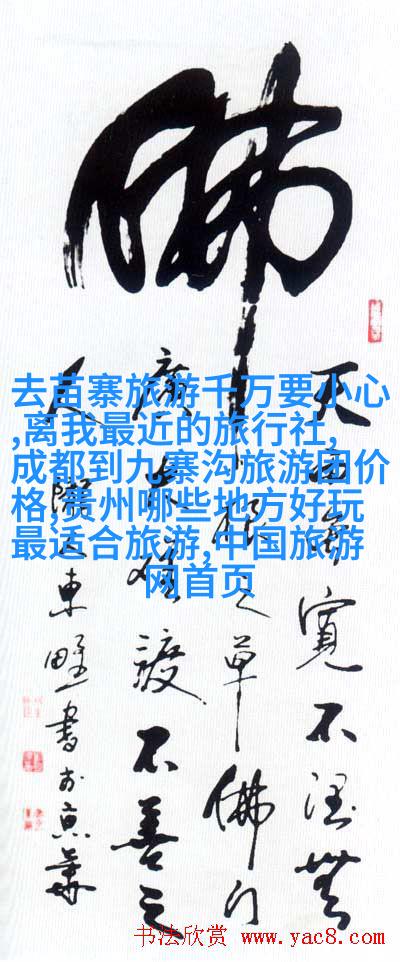 佛
天雨雖寬不润無
根之草佛门
廣大難渡不善之
人東野書於京華
去苗寨旅游千万要小心
,离我最近的旅行社,
成都到九寨沟旅游团价
格,贵州哪些地方好玩
最适合旅游,中国旅游
网首页
书法欣赏 www.yac8.com